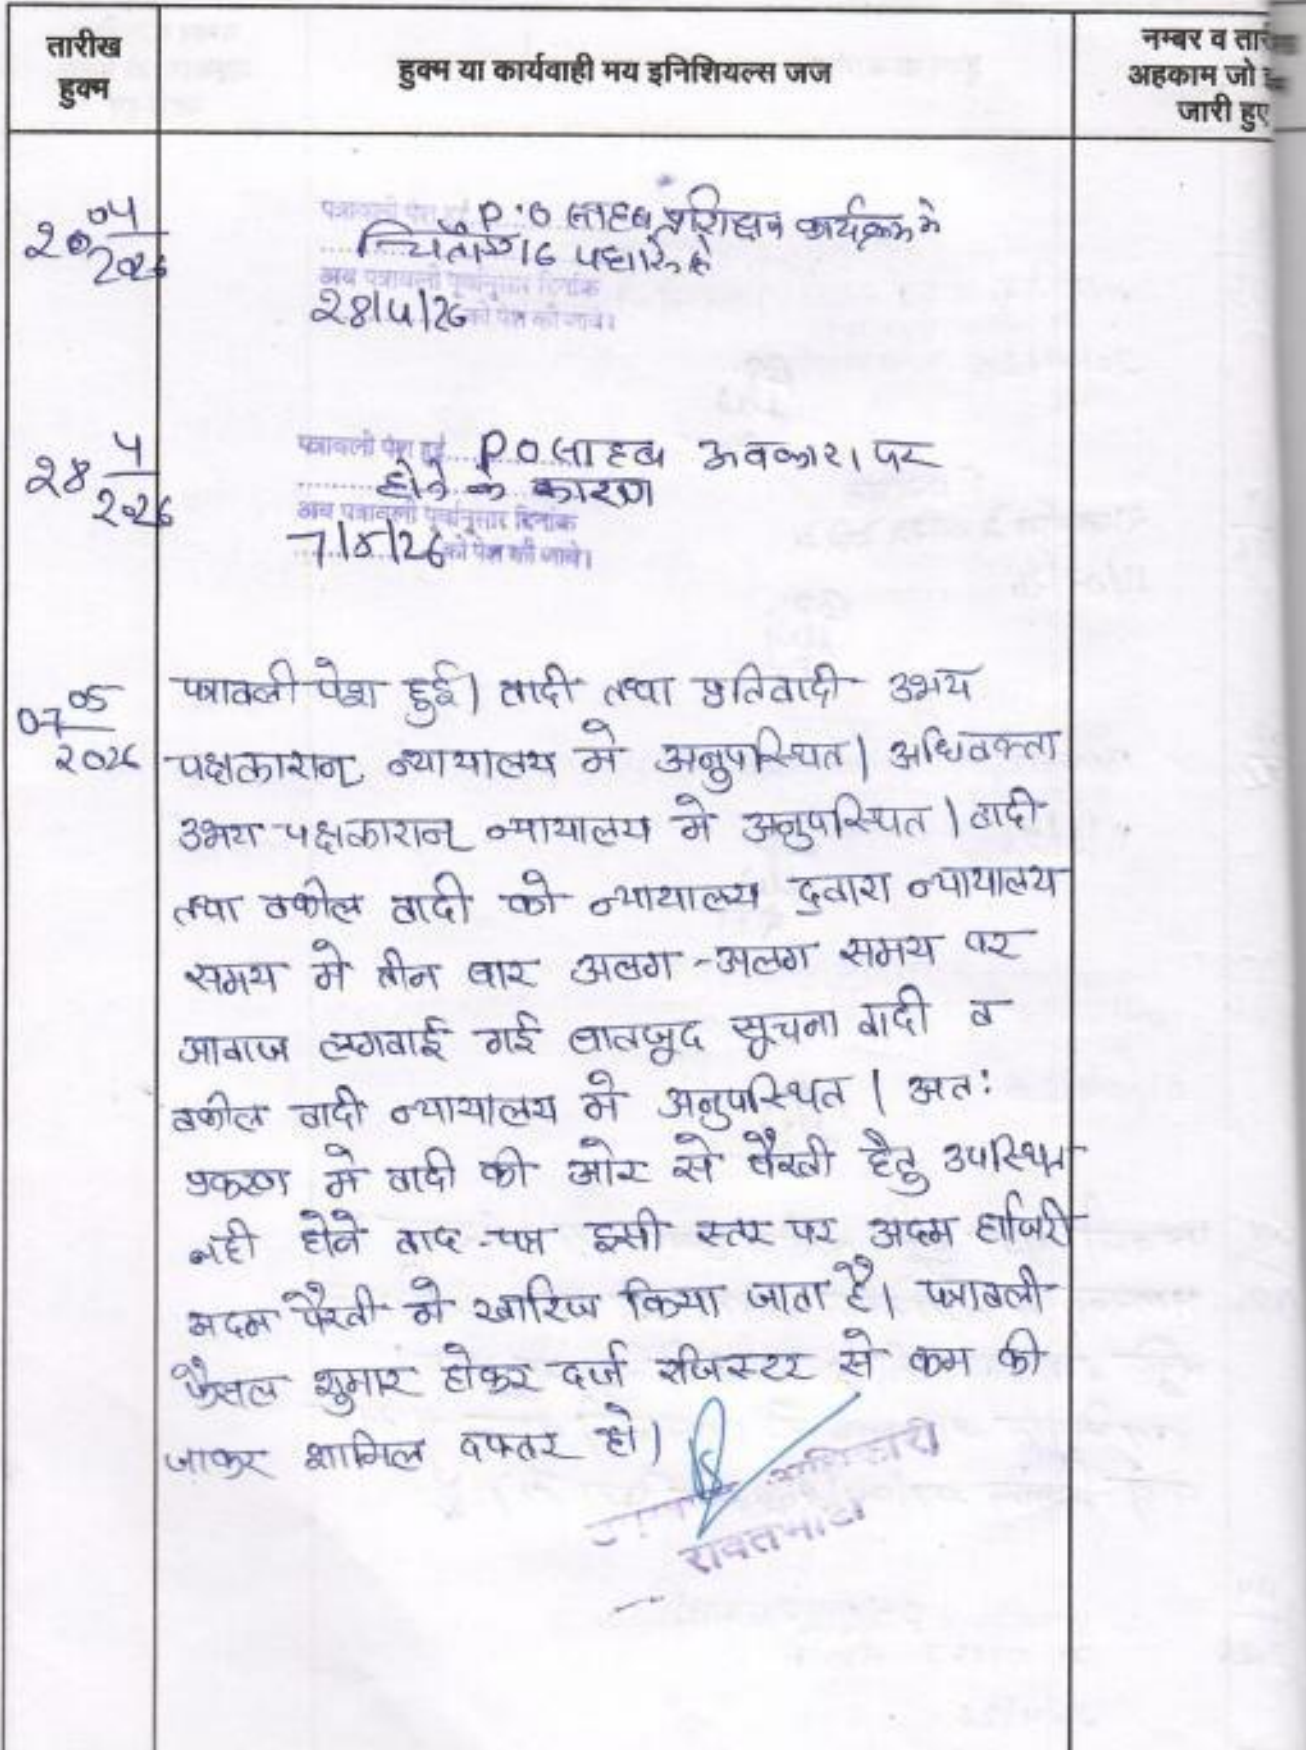 तारीख
हुक्म
हुक्म या कार्यवाही मय इनिशियल्स जज
नम्बर व तारी
अहकाम जो इ
जारी हुए
20 04/2026
पत्रावली पेश हुई P.O साहब प्रशिक्षण कार्यक्रम मे
चित्तौड़गढ पधारे है
अब पत्रावली पूर्वानुसार दिनांक
28/4/26 को पेश की जावे।
28 4/2026
पत्रावली पेश हुई P O साहब अवकाश पर
होने के कारण
अब पत्रावली पूर्वानुसार दिनांक
7/5/26 को पेश की जावे।
07 05/2026
पत्रावली पेश हुई। वादी तथा प्रतिवादी उभय
पक्षकारान् न्यायालय मे अनुपस्थित। अधिवक्ता
उभय पक्षकारान् न्यायालय मे अनुपस्थित। वादी
तथा वकील वादी को न्यायालय द्वारा न्यायालय
समय मे तीन बार अलग-अलग समय पर
आवाज लगवाई गई बावजूद सूचना वादी व
वकील वादी न्यायालय मे अनुपस्थित। अतः
प्रकरण मे वादी की ओर से पैरवी हेतु उपस्थित
नही होने वाद-पत्र इसी स्तर पर अदम हाजिरी
अदम पैरवी मे खारिज किया जाता है। पत्रावली
फैसल शुमार होकर दर्ज रजिस्टर से कम की
जाकर शामिल दफ्तर हो।
अधिकारी
रावतभाटा